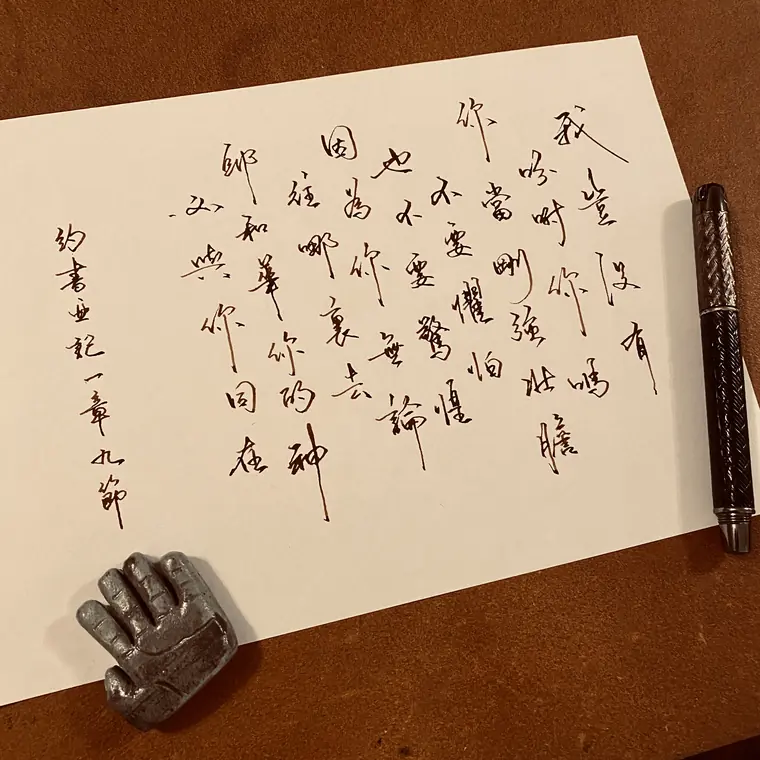 我豈沒有
吩咐你嗎
你當剛強壯膽
不要懼怕
也不要驚惶
因為你無論
往哪裏去
耶和華你的神
必與你同在
約書亞記一章九節